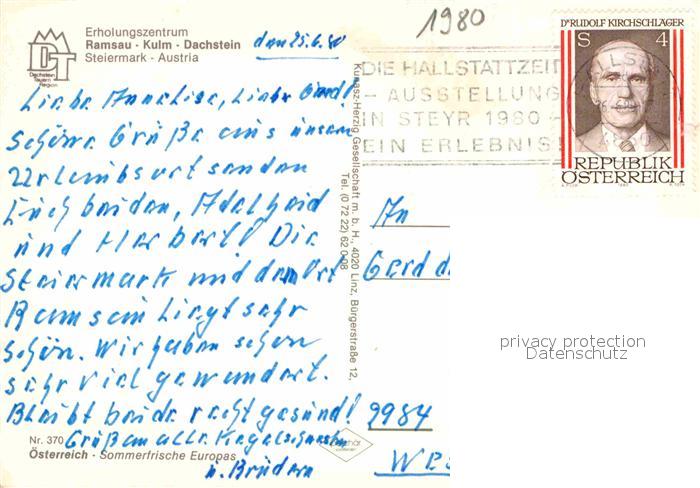 1980
Erholungszentrum
Ramsau · Kulm · Dachstein
Steiermark · Austria
DT
Dachstein
Tauern
Region
den 25.6.80
Liebe Annelise, Lieber Gerd!
Schöne Grüße aus unserem
Urlaubsort senden
Euch beiden, Adelheid
und Herbert! Die
Steiermark und dem Ort
Ramsau liegt sehr
schön. Wir haben schon
sehr viel gewandert.
Bleibt beide recht gesund!
Grüßen alle Kegelschwestern
u. Brüdern
Nr. 370
Österreich · Sommerfrische Europas
Herzig Gesellschaft m. b. H., 4020 Linz, Bürgerstraße 12,
Tel. (0 72 22) 62 0 08
DIE HALLSTATTZEIT
- AUSSTELLUNG
IN STEYR 1980 -
EIN ERLEBNIS
DR RUDOLF KIRCHSCHLÄGER
S 4
REPUBLIK
ÖSTERREICH
1980
An
Gerd
9984
privacy protection
Datenschutz